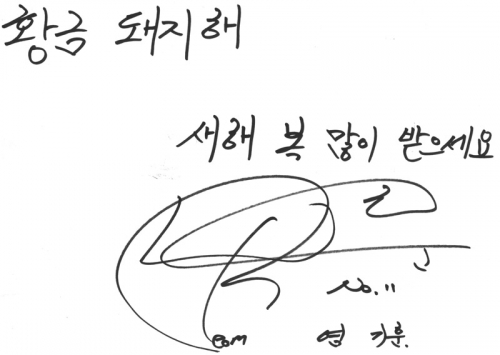 황금 돼지해
새해 복 많이 받으세요
No.11
염 기훈.